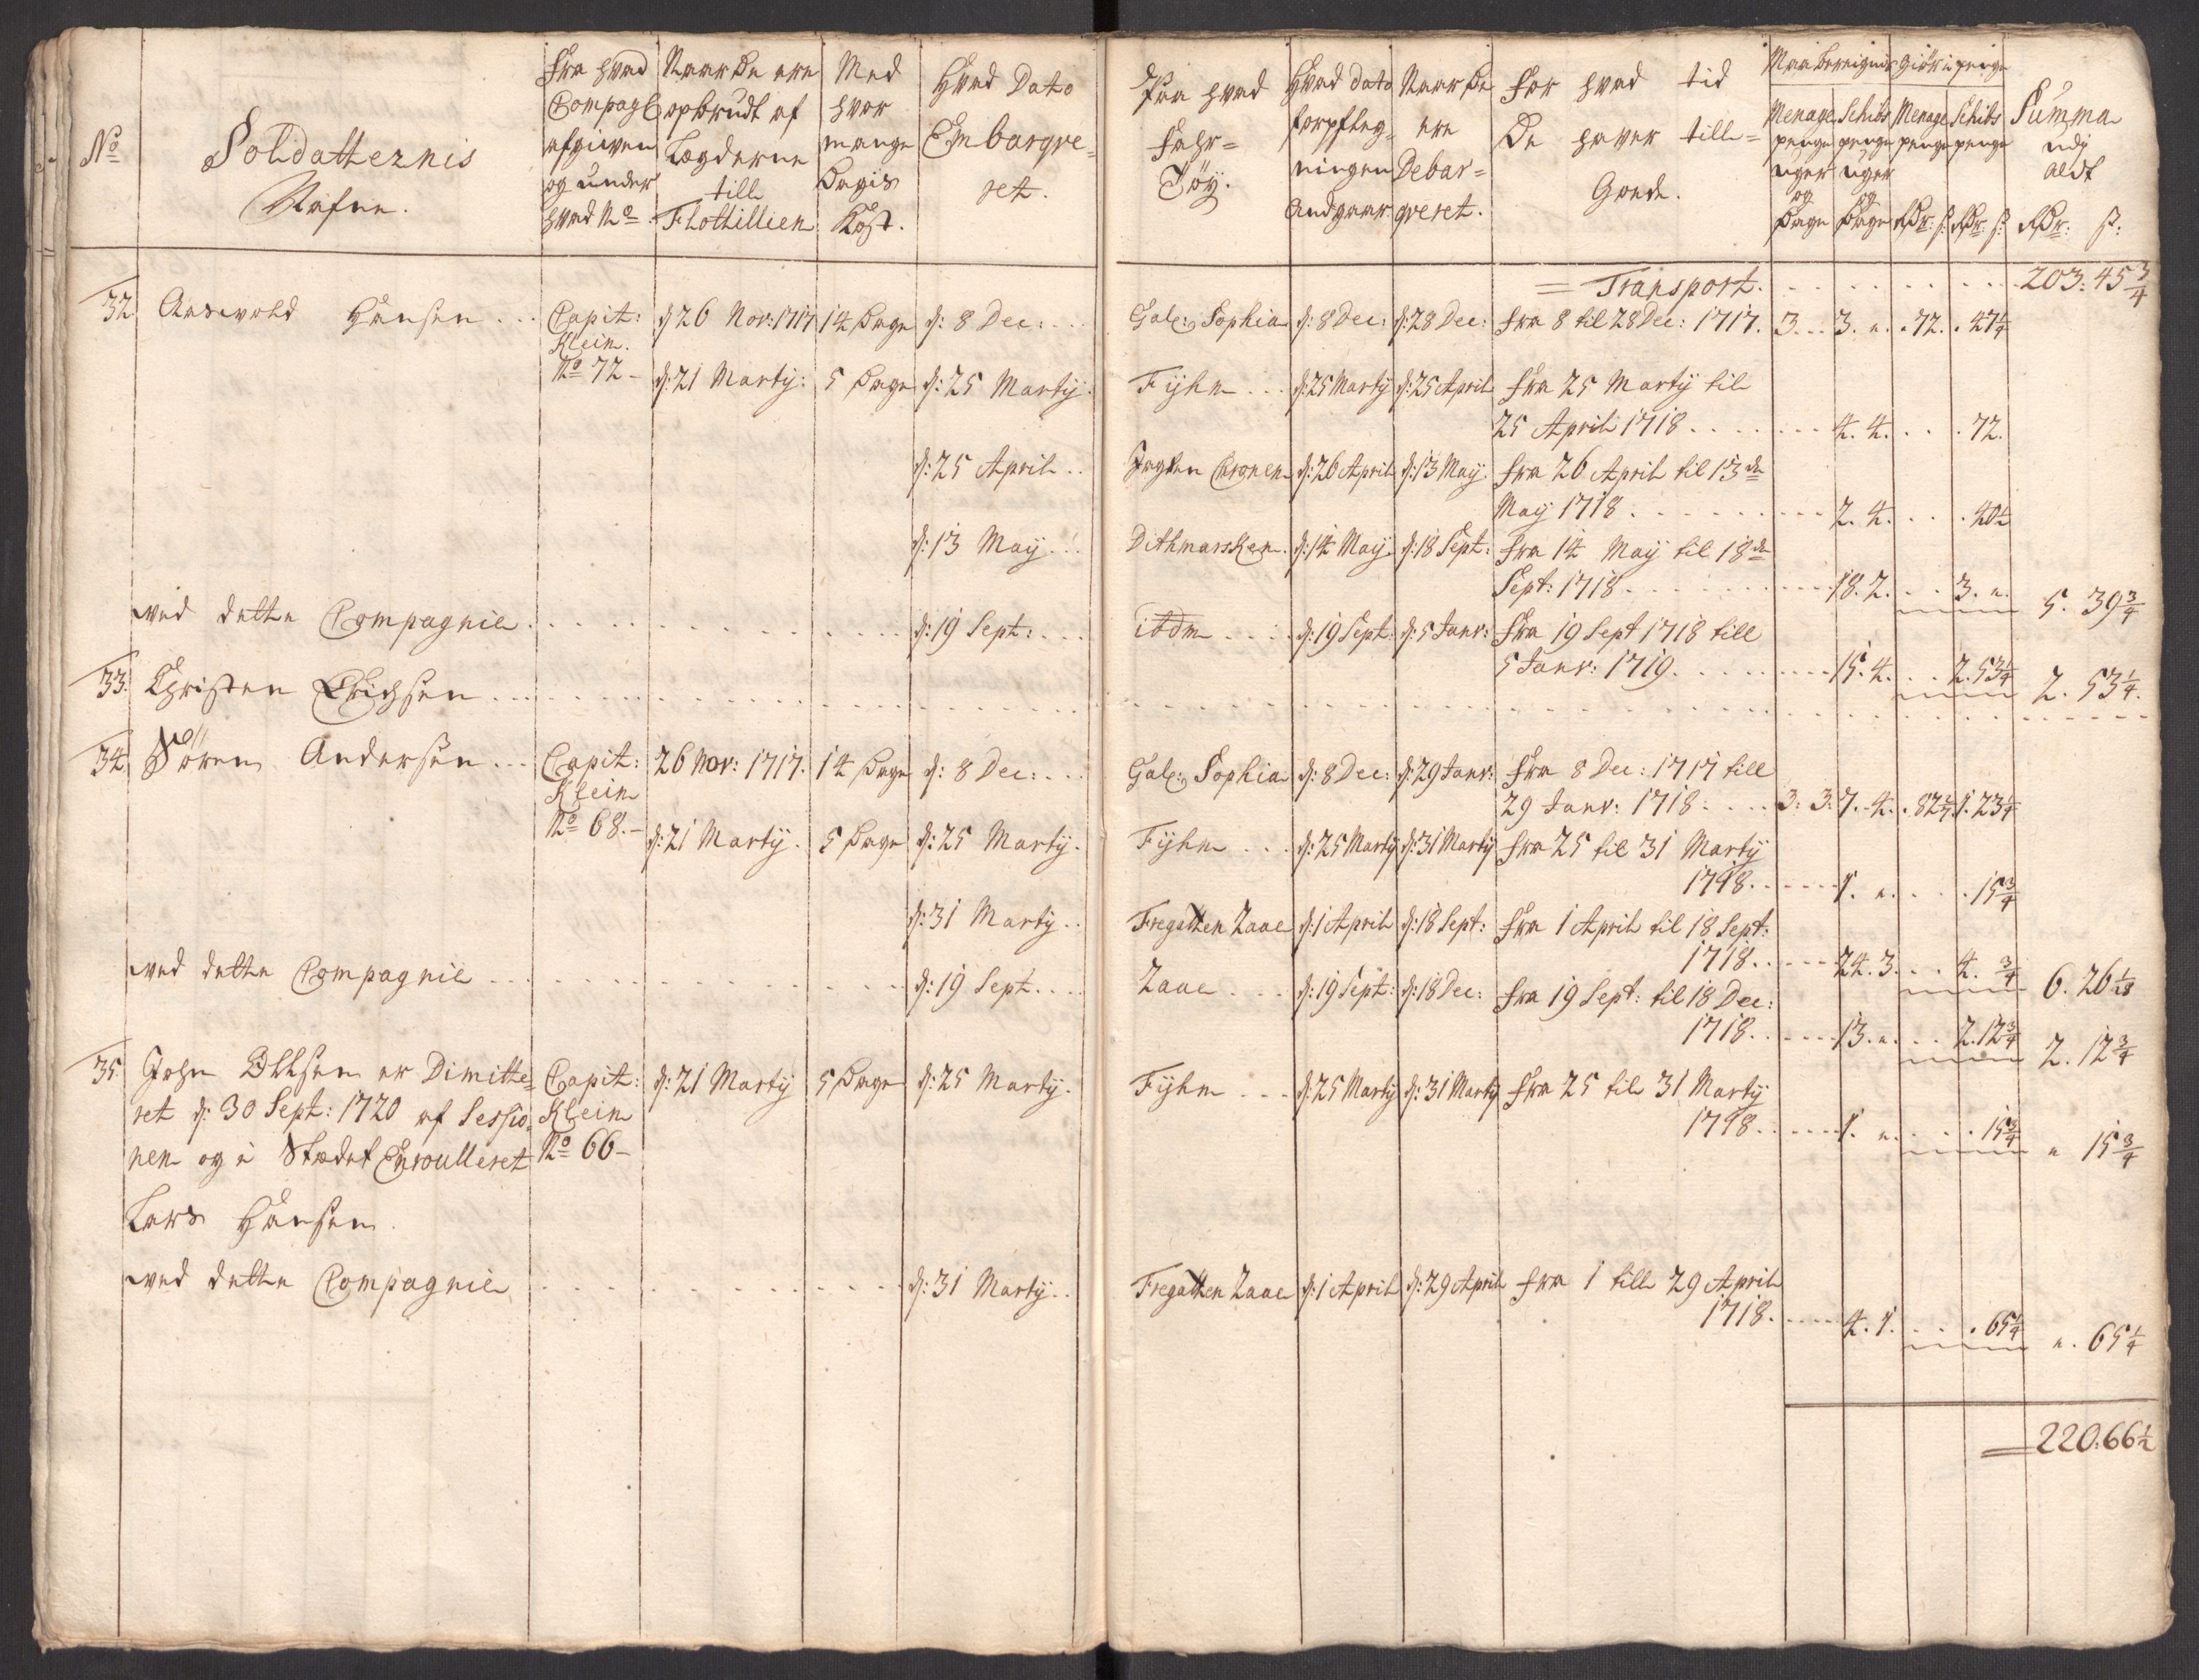 No
Soldatternis
Nafne.
Fra hvad
Compagl
afgiwen
og under
hvad No
Naar De ere
opbrudt af
Lægderne
till
Flottillien
Med
hvor
mange
Dagis
Kost.
Hvad Dato
Embarqve=
ret.
Paa hvad
Fahr=
Töy.
Hvad dato
forpfleg=
ningen
Andgaar
Naar De
ere
Debar=
qveret.
For hvad tid
De haver till=
Gode.
Maa bereignis
Giör i penge
Menage
penge
uger
og
Dage
Schibs
penge
uger
og
Dage
Menage
penge
Rdr: ß:
Schibs
penge
Rdr: ß:
Summa
udj
aldt
Rdr: ß:
= Transport. . . . . . . . . 203. 45 3/4
32. Aasvold Hansen . . . Capit: d: 26 Nov: 1717 14 Dage d: 8 Dec: . . . Gal: Sophia d: 8 Dec: d: 28 Dec: fra 8 til 28 Dec: 1717. 3. . . 3. „ . 72. . 47 1/4
Klein.
No 72 - d: 21 Martij: 5 Dage d: 25 Martij. Fijhn . . . d: 25 Martij d: 25 April fra 25 Martij til
25 April 1718 . . . . . . 4. 4. . . . 72.
d: 25 April . . Jagten Cronen d: 26 April d: 13 May. fra 26 April til 13de
May 1718 . . . . . . 2. 4. . . . 40 1/2
d: 13 May . . . Dithmarsken. d: 14 May. d: 18 Sept: fra 14 May til 18de
Sept: 1718 . . . . . . 18. 2. . . 3. „. 5. 39 3/4
ved dette Compagnie . . . . . . d: 19 Sept: . . . itdm . . . . d: 19 Sept: d: 5 Janv: fra 19 Sept 1718 till
5 Janv: 1719. . . . . . 15. 4. . . 2. 53 1/4 2. 53 1/4.
33. Christen Erichsen . . . . . .
34. Sören Andersen . . . Capit: 26 Nov: 1717. 14 Dage d: 8 Dec: . . . Gal: Sophia d: 8 Dec: d: 29 Janv: fra 8 Dec: 1717 till
Klein 29 Janv: 1718 . . . . 3: 3. 7. 4. . 82 2/7 1. 23 1/4
No 68. - d: 21 Martij. 5 Dage d: 25 Martij. Fijhn . . . d: 25 Martij d: 31 Martij fra 25 til 31 Martij
1718. . . . . . 1. „ . . . . 15 3/4
d: 31 Martij . . Fregatten Zaae d: 1 April d: 18 Sept: fra 1 April til 18 Sept:
1718. . . . . 24. 3. . . 4. 3/4 6. 26 1/28
ved dette Compagnie . . . . . . d: 19 Sept. . . . Zaae . . . d: 19 Sept: d: 18 Dec: fra 19 Sept: til 18 Dec:
1718. . . . . 13. „ . . . 2. 12 3/4 2. 12 3/4
35. John Ollsen er Dimitte= Capit: d: 21 Martij 5 Dage d: 25 Martij. Fijhn . . . d: 25 Martij d: 31 Martij fra 25 til 31 Martij
ret d: 30 Sept: 1720 af Sessio= Klein 1718. . . . . . 1. „. . . . 15 3/4 „ 15 3/4
nen og i Stædet Enroulleret No 66 -
Lars Hansen.
ved dette Compagnie . . . . . . d: 31 Martij. . Fregatten Zaae d: 1 April d: 29 April fra 1 till 29 April
1718. . . . . . 4. 1. . . . 65 1/4 „. 65 1/4
= 220. 66 1/2